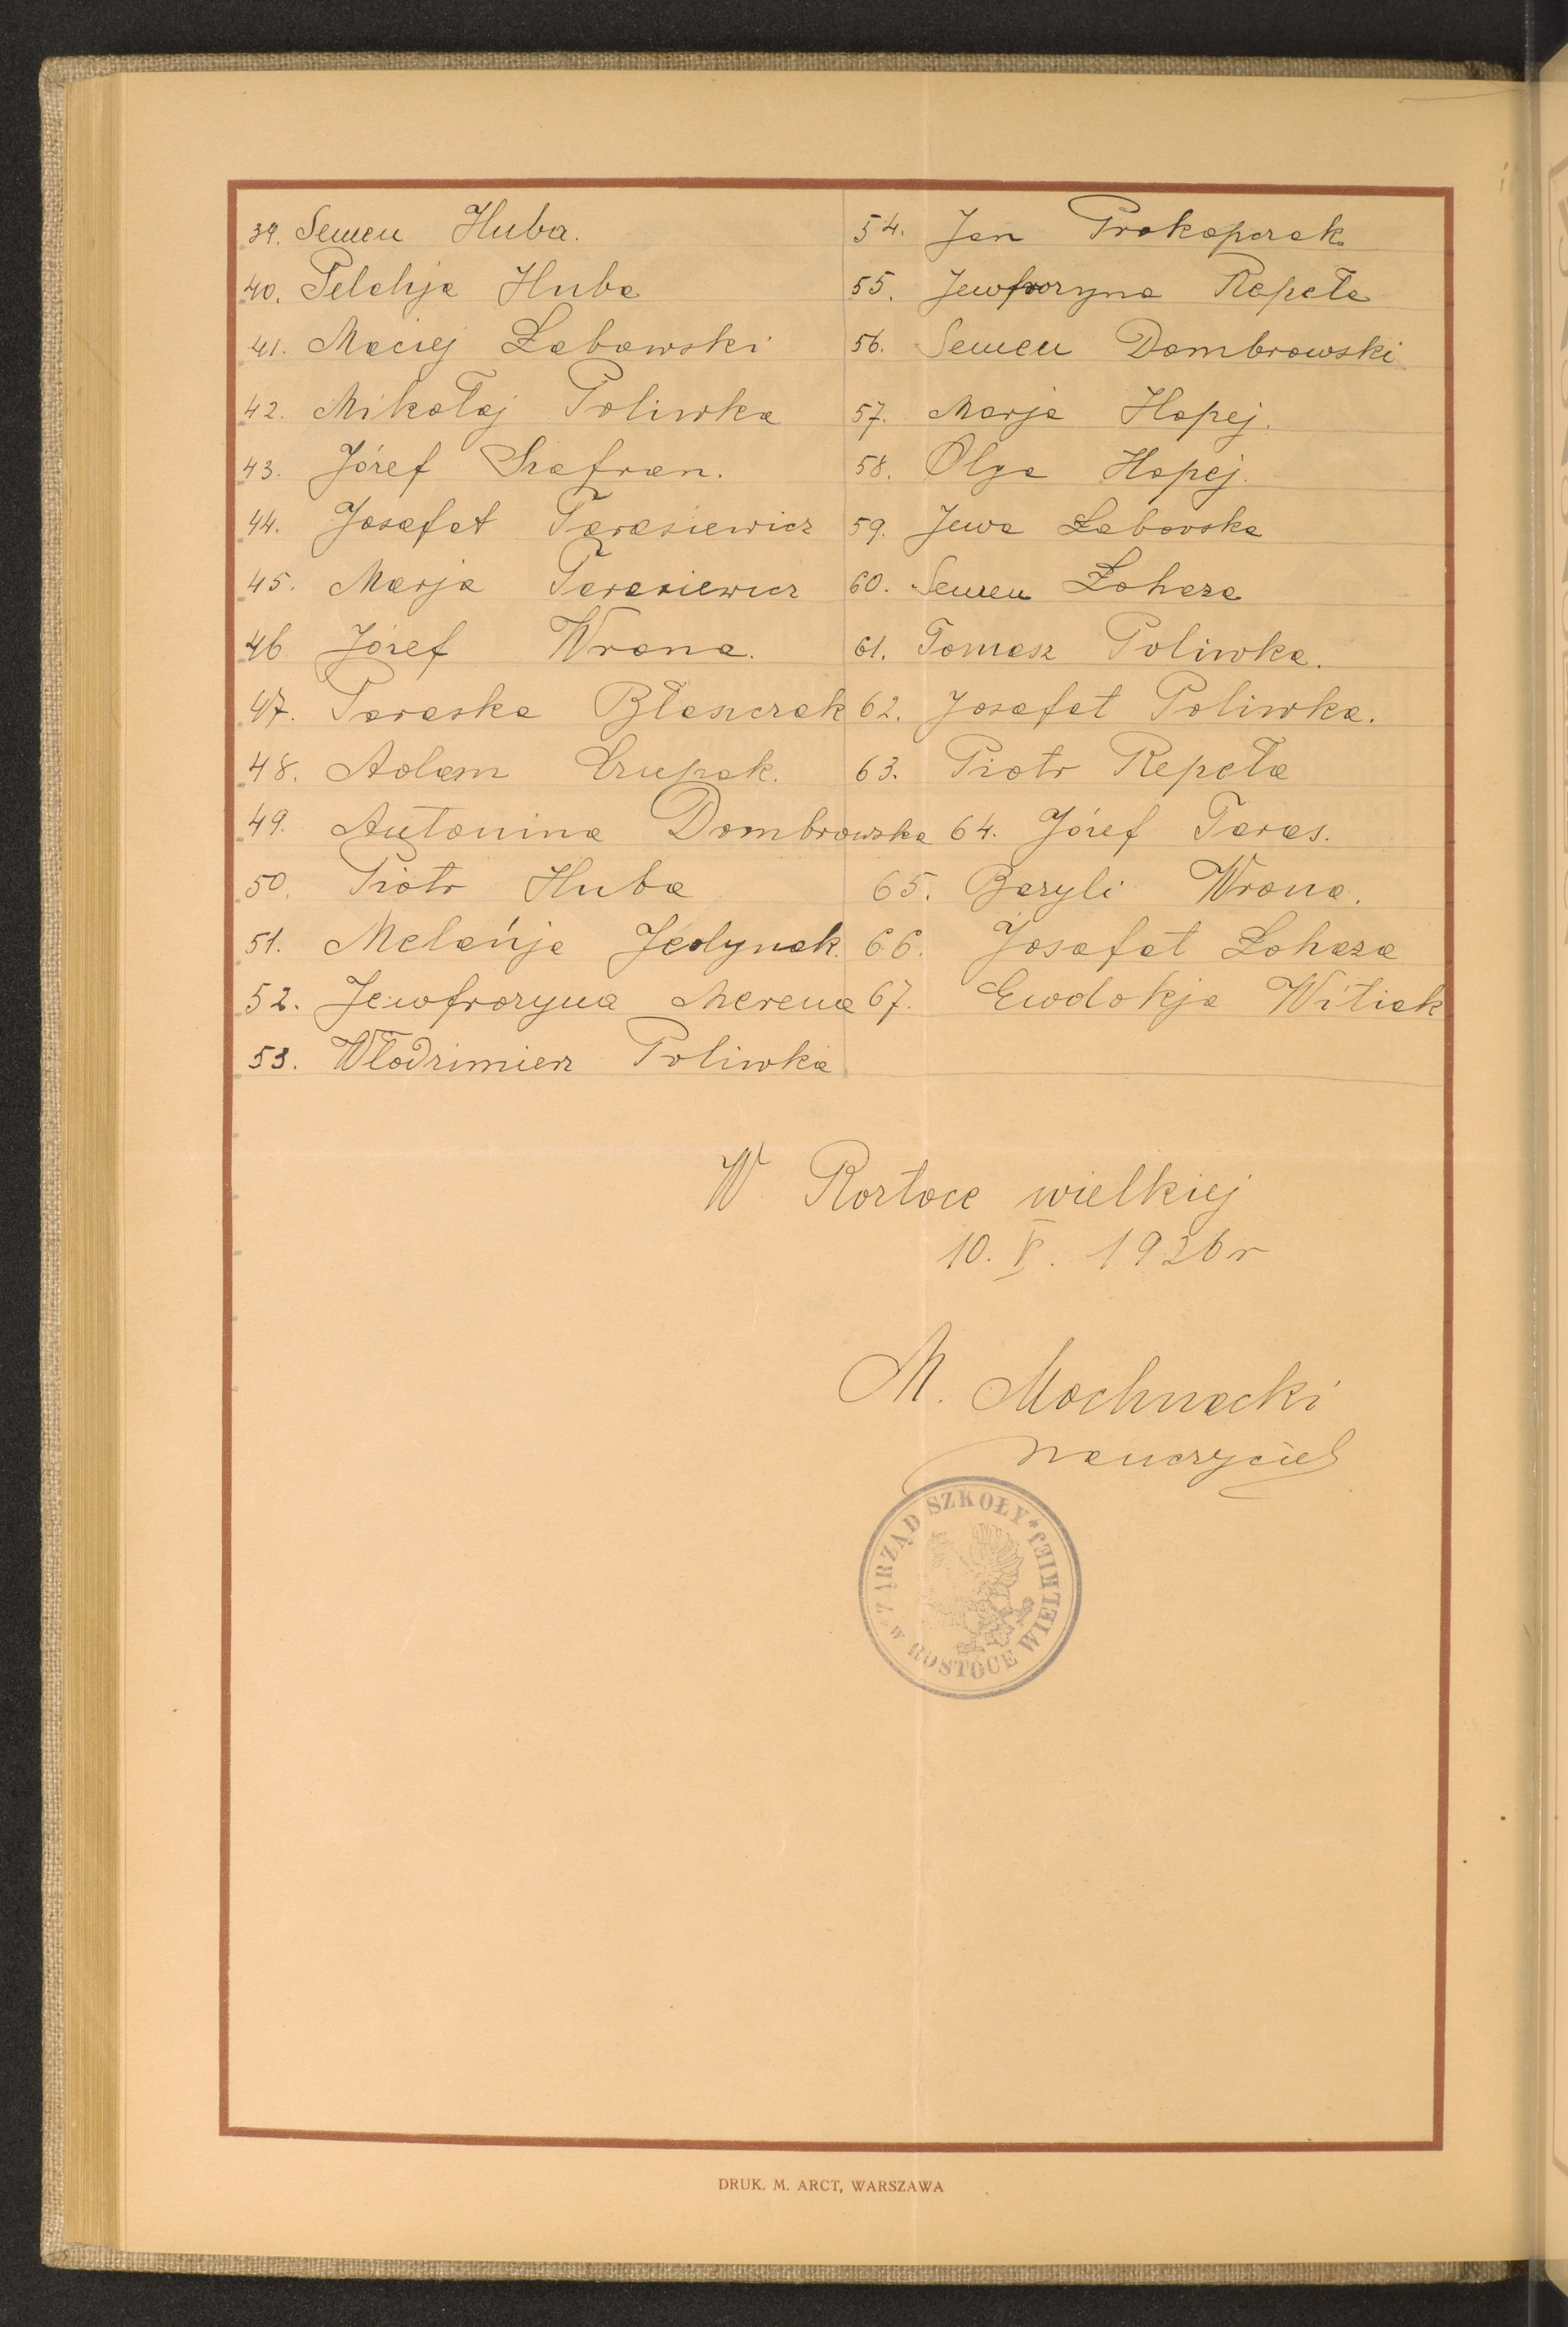 39. Semen Huba.
40. Pelahja Huba
41. Maciej Łabowski
42. Mikołaj Poliwka
43. Józef Szafran.
44. Josafat Tarasiewicz
45. Marja Tarasiewicz
46. Józef Wrona.
47. Paraska Błaszczak
48. Adam Czupak.
49. Antonina Dombrowska
50. Piotr Huba
51. Melańja Jedynak.
52. Jewfrozyna Merena
53. Włodzimierz Poliwka
54. Jan Prokopczak
55. Jewfrozyna Repeła
56. Semen Dombrowski
57. Marja Hapej.
58. Olga Hapej.
59. Jewa Łabovska
60. Semen Łohaza
61. Tomasz Poliwka.
62. Josafat Poliwka.
63. Piotr Repeła
64. Józef Taras.
65. Bazyli Wrona.
66. Josafat Łohaza
67. Ewdokja Witiak
W Roztoce wielkiej
10. V. 1926 r
M. Mochnacki
nauczyciel
ZARZĄD SZKOŁY
W ROSTOCE WIELKIEJ
DRUK. M. ARCT, WARSZAWA